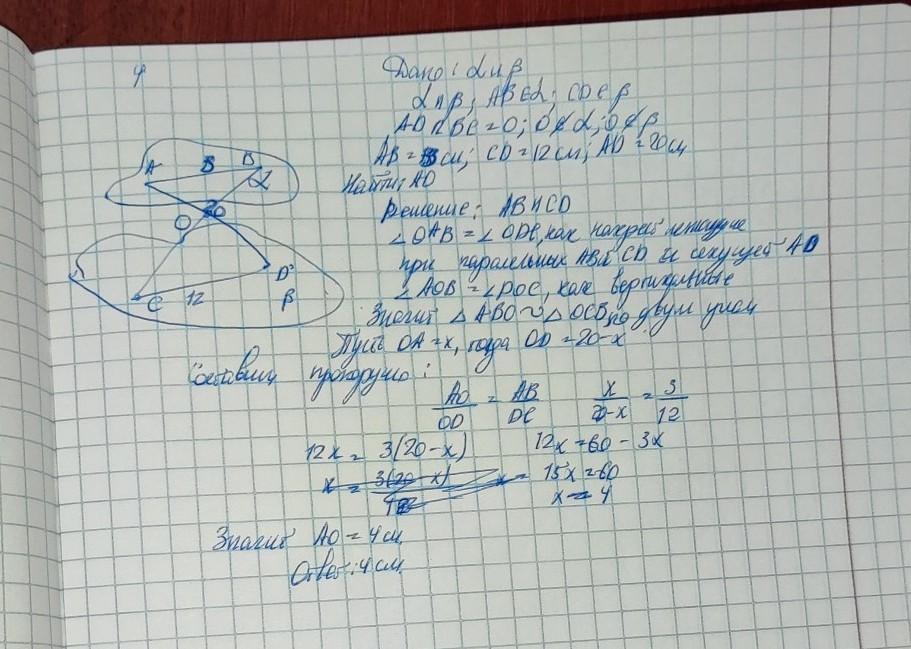 4
Дано: α и β
α ∩ β; AB ∈ α; CD ∈ β
AD ∩ BC = O; O ∉ α; O ∉ β
AB = 3 см; CD = 12 см; AD = 20 см
Найти: AO
Решение: AB ∥ CD
∠OAB = ∠ODC, как накрест лежащие
при паралельных AB и CD и секущей AD
∠AOB = ∠DOC, как вертикальные
Значит △ABO ∾ △OCD, по двум углам
Пусть OA = x, тогда OD = 20-x
Составим :
AO/OD = AB/DC x/20-x = 3/12
12x = 3(20-x) 12x = 60 - 3x
x = 3(20-x)/12 15x = 60
x = 4
Значит AO = 4 см
Ответ: 4 см
A 3 B
α
20
O
C 12 D
β